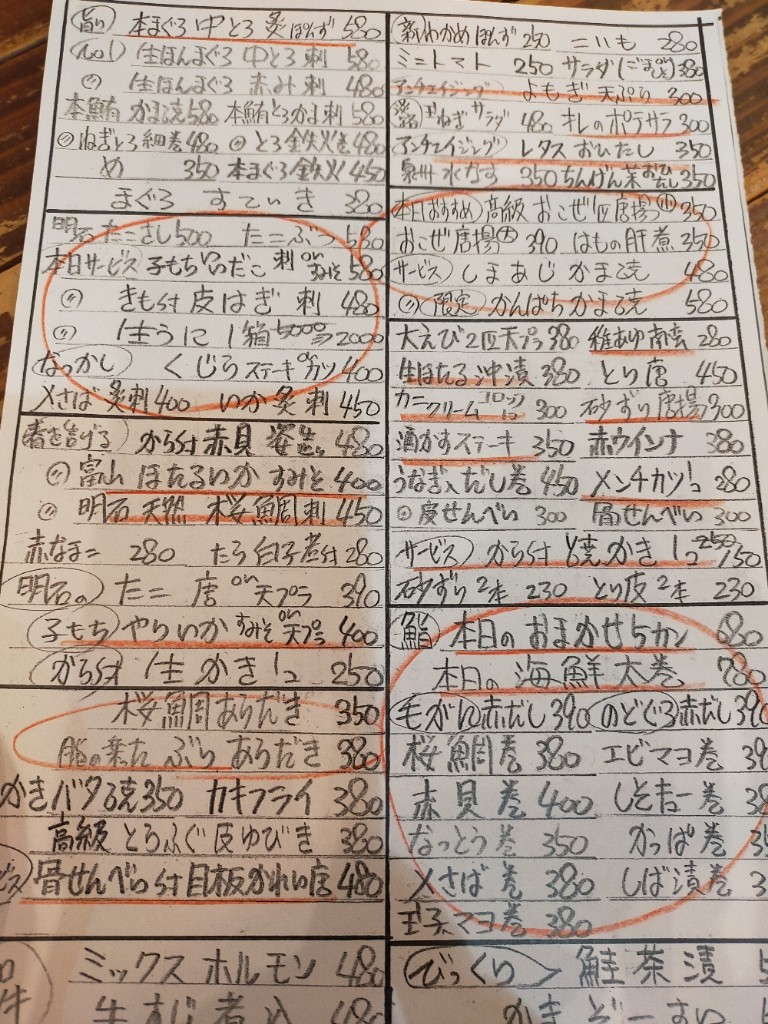 旨い 本まぐろ 中とろ 炙ぽんず 580
No1 生ほんまぐろ 中とろ 刺 580
〃 生ほんまぐろ 赤み 刺 480
本鮪 かま焼 580 本鮪とろかま刺 580
〃 ねぎとろ細巻 480 〃 とろ鉄火巻 480
め 350 本まぐろ鉄火 450
まぐろ すていき 380
明石 たこさし 500 たこぶつ 580
本日サービス 子もちいいだこ 刺 or すみそ 580
〃 きも付 皮はぎ 刺 480
〃 生うに 1箱 5000 2000
なつかし くじら ステーキ or カツ 400
〆さば 炙刺 400 いか 炙 刺 450
春を告げる から付 赤貝 姿造り 480
〃 富山 ほたるいか すみそ 400
〃 明石 天然 桜鯛刺 450
赤なまこ 280 たら白子煮付 280
明石の たこ 唐 or 天プラ 390
子もち やりいか すみそ or 天プラ 400
から付 生 かき 1コ 250
桜鯛あらだき 350
脂の乗た ぶり あらだき 380
かきバタ焼 350 カキフライ 380
高級 とらふぐ皮ゆびき 380
骨せんべい付 目板かれい唐 480
ミックス ホルモン 480
牛 すじ 煮込 480
新わかめ ぽんず 250 こいも 280
ミニトマト 250 サラダ(ごまorポンズ) 380
アンチエイジング よもぎ 天ぷら 300
玉ねぎ サラダ 480 オレのポテサラ 300
アンチエイジング レタス おひたし 350
泉州 水なす 350 ちんげん菜おひたし 350
本日おすすめ 高級 おこぜ1匹唐揚 小 350
おこぜ唐揚 大 390 はもの肝煮 350
サービス しまあじ かま焼 480
〃 限定 かんぱちかま焼 580
大えび2匹天プラ 380 稚あゆ南蛮 280
生ほたる沖漬 380 とり唐 450
カニクリームコロッケ 1コ 300 砂ずり唐揚 300
酒かすステーキ 350 赤ウインナ 380
うなぎ入だし巻 450 メンチカツ1コ 280
〃 皮せんべい 300 骨せんべい 300
サービス から付 焼かき 1コ 250 150
砂ずり 2本 230 とり皮 2本 230
鮨 本日の おまかせ5カン 680
本日の 海鮮 太巻 780
毛がに赤だし 390 のどぐろ赤だし 390
桜鯛巻 380 エビマヨ巻
赤貝 巻 400 しそきゅー巻
なっとう巻 350 かっぱ巻
〆さば 巻 380 しば漬巻
玉子マヨ巻 380
びっくり 鮭 茶 漬
かき ぞーすい